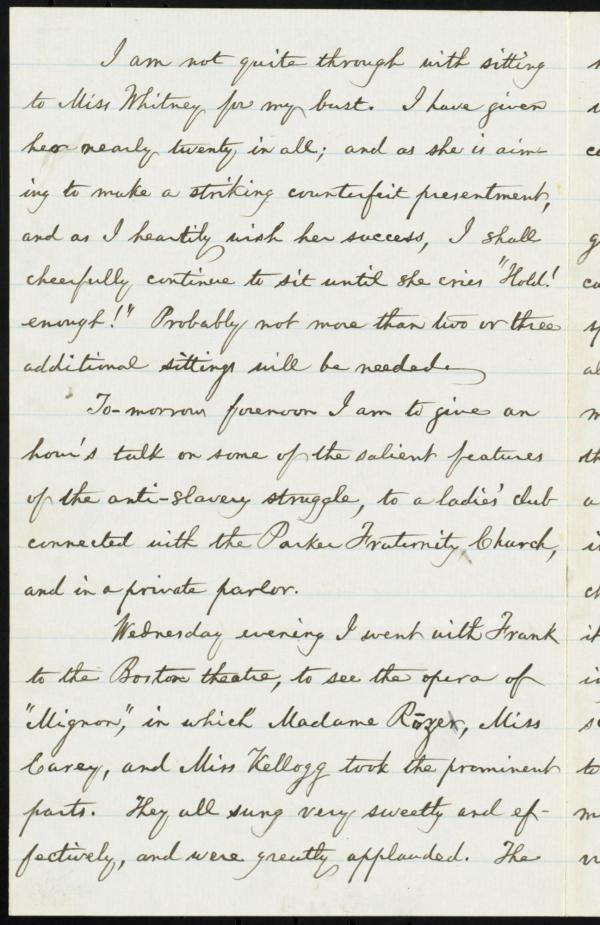 I am not quite through with sitting
to Miss Whitney for my bust. I have given
her nearly twenty in all; and as she is aim-
ing to make a striking counterfeit presentment,
and as I heartily wish her success, I shall
cheerfully continue to sit until she cries "Hold!
enough!" Probably not more than two or three
additional sittings will be needed.
To-morrow forenoon I am to give an
hour's talk on some of the salient features
of the anti-slavery struggle, to a ladies' club
connected with the Parker Fraternity Church,
and in a private parlor.
Wednesday evening I went with Frank
to the Boston theatre, to see the opera of
"Mignon," in which Madame Rōzer, Miss
Carey, and Miss Kellogg took the prominent
parts. They all sung very sweetly and ef-
fectively, and were greatly applauded. The